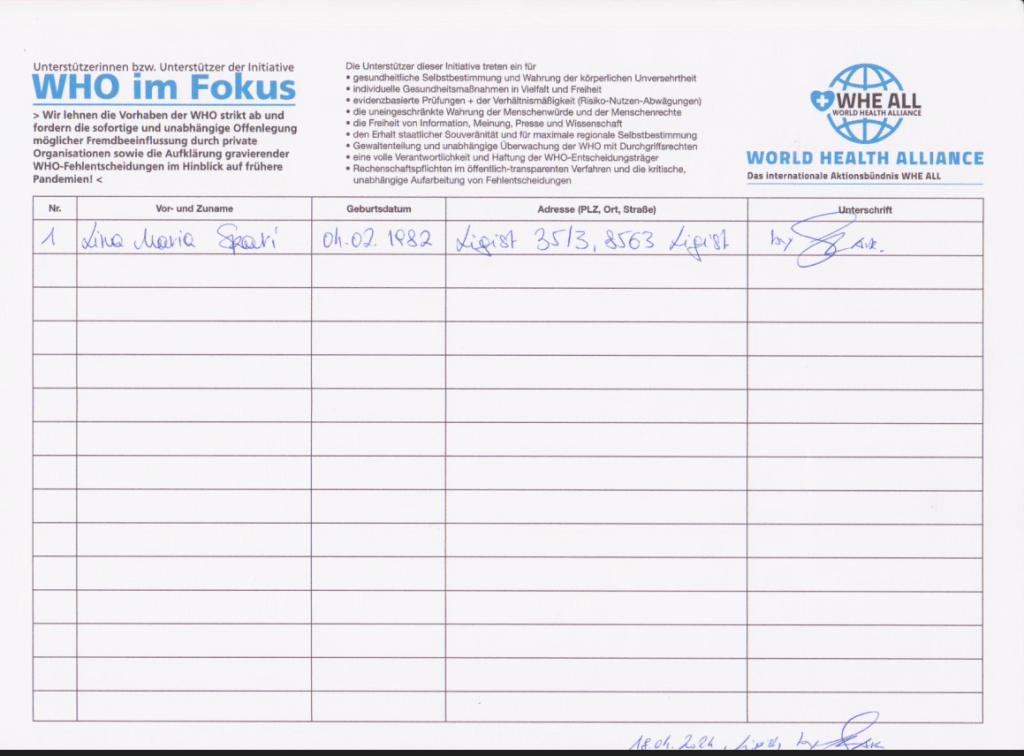 Unterstützerinnen bzw. Unterstützer der Initiative
WHO im Fokus
> Wir lehnen die Vorhaben der WHO strikt ab und
fordern die sofortige und unabhängige Offenlegung
möglicher Fremdbeeinflussung durch private
Organisationen sowie die Aufklärung gravierender
WHO-Fehlentscheidungen im Hinblick auf frühere
Pandemien! <
Die Unterstützer dieser Initiative treten ein für
• gesundheitliche Selbstbestimmung und Wahrung der körperlichen Unversehrtheit
• individuelle Gesundheitsmaßnahmen in Vielfalt und Freiheit
• evidenzbasierte Prüfungen + der Verhältnismäßigkeit (Risiko-Nutzen-Abwägungen)
• die uneingeschränkte Wahrung der Menschenwürde und der Menschenrechte
• die Freiheit von Information, Meinung, Presse und Wissenschaft
• den Erhalt staatlicher Souveränität und für maximale regionale Selbstbestimmung
• Gewaltenteilung und unabhängige Überwachung der WHO mit Durchgriffsrechten
• eine volle Verantwortlichkeit und Haftung der WHO-Entscheidungsträger
• Rechenschaftspflichten im öffentlich-transparenten Verfahren und die kritische,
unabhängige Aufarbeitung von Fehlentscheidungen
WHE ALL
WORLD HEALTH ALLIANCE
WORLD HEALTH ALLIANCE
Das internationale Aktionsbündnis WHE ALL
Nr. Vor- und Zuname Geburtsdatum Adresse (PLZ, Ort, Straße) Unterschrift
1 Lina Maria 04.02.1982 Ligist 35/3, 8563 Ligist by
18.04.2024, Ligist, by